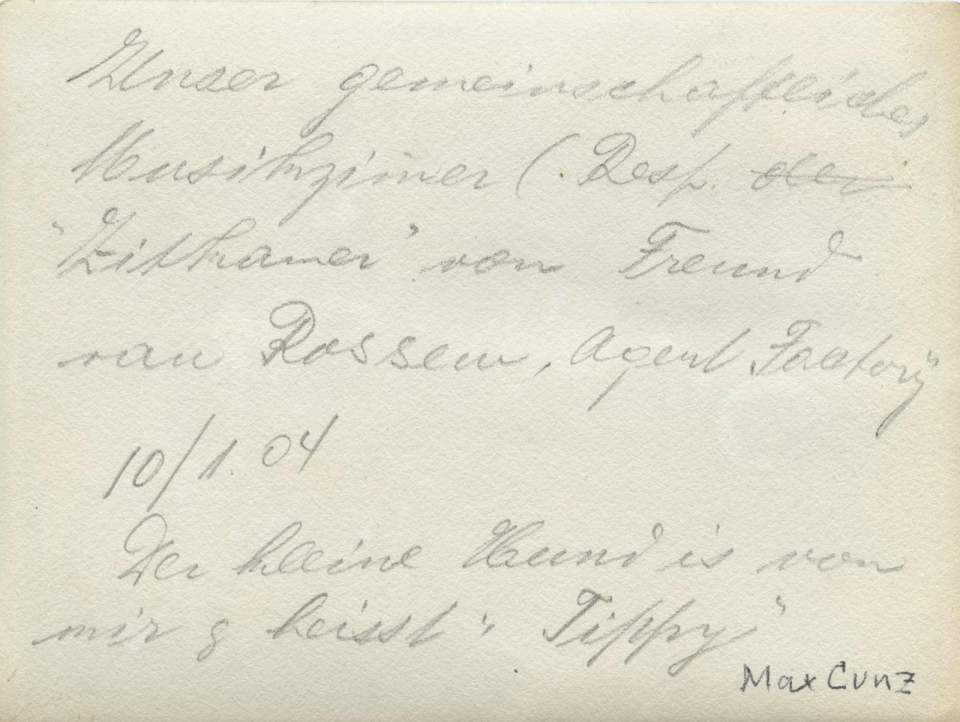 Unser gemeinschaftliches
Musikzimer (. Resp. der
"Zitkamer" von Freund
van Rossem, Agent Factory
10/1.04
Der kleine Hund is von
mir & heisst: "Tippy"
Max Cunz